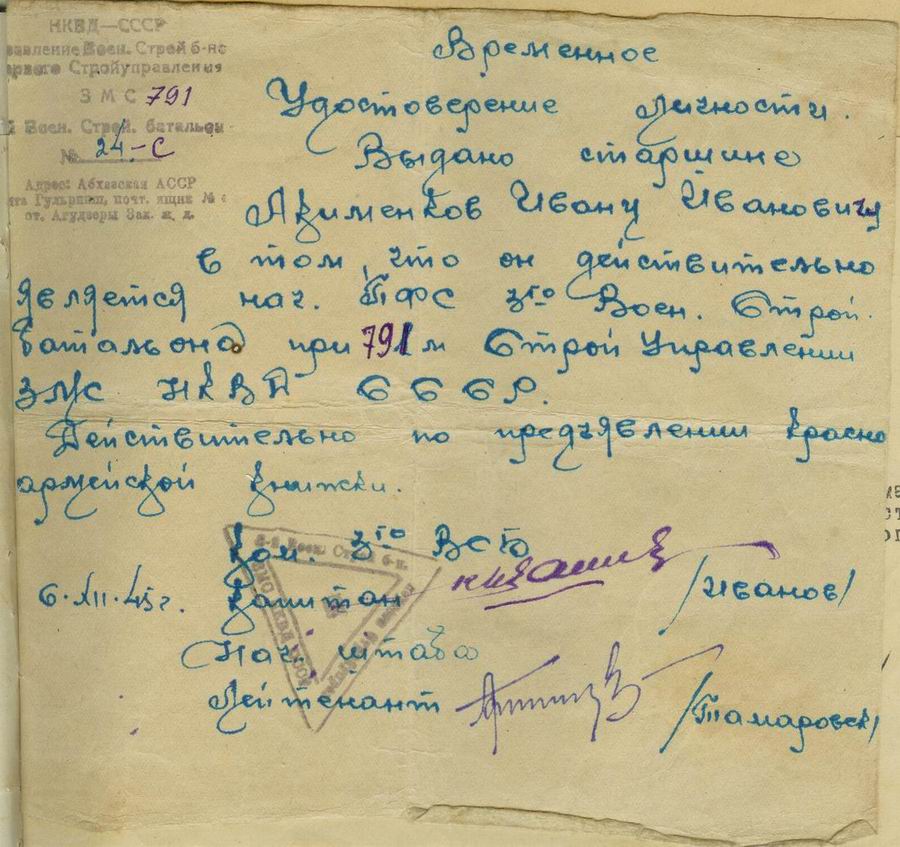 НКВД—СССР
Воен. Строй б-на
Стройуправления
ЗМС 791
Воен. Строй. батальон
№ 24-С
Адрес: Абхазская АССР
Гульрипш, почт. ящик №
ст. Агудзеры Зак. ж. д.
Временное
Удостоверение личности.
Выдано старшине
Акименков Ивану Ивановичу
в том, что он действительно
является нач. ПФС 3го Воен. Строй.
батальона при 791м Строй Управлении
ЗМС НКВД СССР.
Действительно по предъявлении красно
армейской книжки.
Ком. 3го ВСБ
6.XII.45г. Капитан /Иванов/
Нач. штаба
Лейтенант /Тамаровск/
3-й Воен. Строй б-н.
НКВД СССР